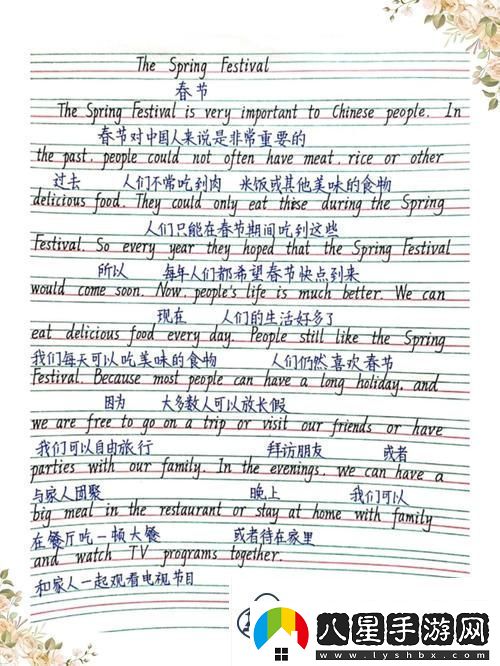 The Spring Festival
春节
The Spring Festival is very important to Chinese people. In
春节对中国人来说是非常重要的
the past, people could not often have meat, rice or other
过去 人们不常吃到肉 米饭或其他美味的食物
delicious food. They could only eat these during the Spring
人们只能在春节期间吃到这些
Festival. So every year they hoped that the Spring Festival
所以 每年人们都希望春节快点到来
would come soon. Now, people's life is much better. We can
现在 人们的生活好多了
eat delicious food every day. People still like the Spring
我们每天可以吃美味的食物 人们仍然喜欢春节
Festival. Because most people can have a long holiday, and
因为 大多数人可以放长假
we are free to go on a trip or visit our friends or have
我们可以自由旅行 拜访朋友 或者
parties with our family. In the evenings, we can have a
与家人团聚 晚上 我们可以
big meal in the restaurant or stay at home with family
在餐厅吃一顿大餐 或者待在家里
and watch TV programs together.
和家人一起观看电视节目
八星手游网
www.lyshbx.com